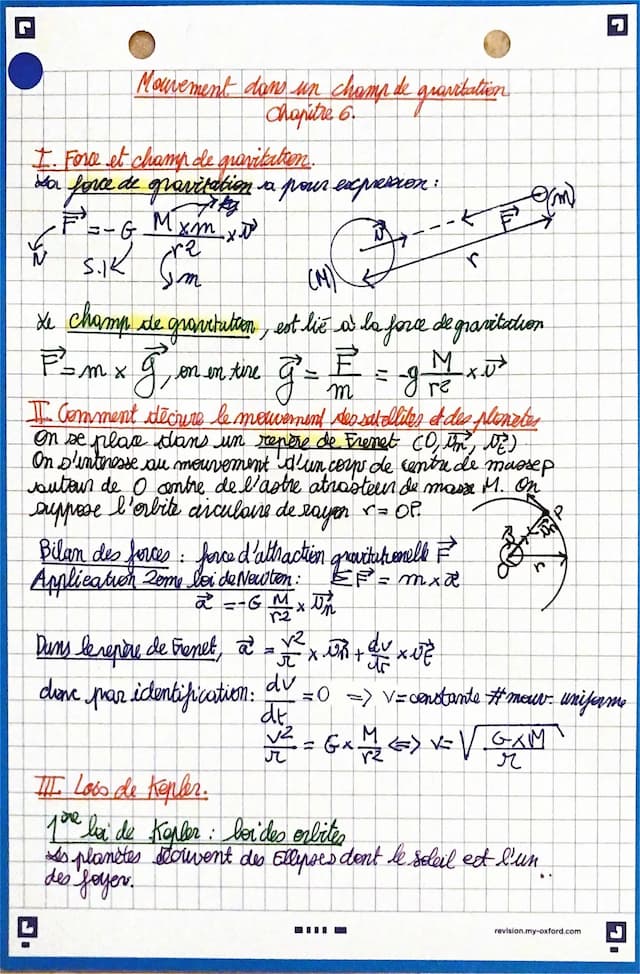 Mouvement dans un champ de gravitation
Chapitre 6.
I. Force et champ de gravitation.
La force de gravitation a pour expression :
F = -G M x m / r2 x u
N S.I kg m
(M) u F (m) r
Le champ de gravitation, est lié à la force de gravitation
F = m x g, on en tire g = F / m = -g M / r2 x u
II. Comment décrire le mouvement des satellites et des planètes
On se place dans un repère de Frenet (O, un, ut)
On s'intéresse au mouvement d'un corps de centre de masse P
autour de O centre de l'astre attracteur de masse M. On
suppose l'orbite circulaire de rayon r = OP.
P O r
Bilan des forces : force d'attraction gravitationelle F
Application 2ème loi de Newton : Σ F = m x a
a = -G M / r2 x un
Dans le repère de Frenet, a = v2 / r x un + dv / dt x ut
donc par identification : dv / dt = 0 => v = constante # mouv. uniforme
v2 / r = G x M / r2 <=> v = √ G x M / r
III. Lois de Kepler.
1ère loi de Kepler : loi des orbites
Les planètes décrivent des Ellipses dont le soleil est l'un
des foyer.
revision.my-oxford.com